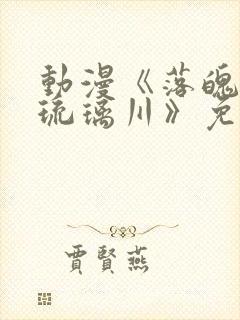 動漫《落魄
琉璃川》免
賈賢燕